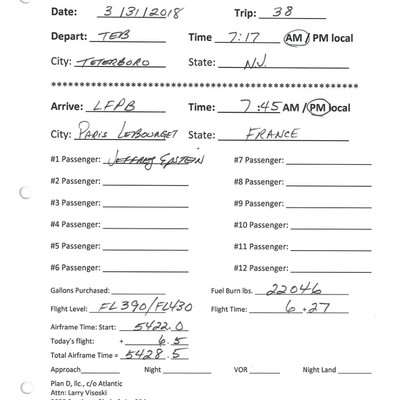 Date: 3/31/2018 Trip: 38
Depart: TEB Time 7:17 AM / PM local
City: TETERBORO State: NJ.
********************************************************
Arrive: LFPB Time: 7:45 AM / PM local
City: PARIS LEBOURGET State: FRANCE
#1 Passenger: JEFFREY EPSTEIN #7 Passenger:
#2 Passenger: #8 Passenger:
#3 Passenger: #9 Passenger:
#4 Passenger: #10 Passenger:
#5 Passenger: #11 Passenger:
#6 Passenger: #12 Passenger:
Gallons Purchased: Fuel Burn lbs. 22046
Flight Level: FL390/FL430 Flight Time: 6 + 27
Airframe Time: Start: 5422.0
Today's flight: + 6.5
Total Airframe Time = 5428.5
Approach Night VOR Night Land
Plan D, llc., c/o Atlantic
Attn: Larry Visoski